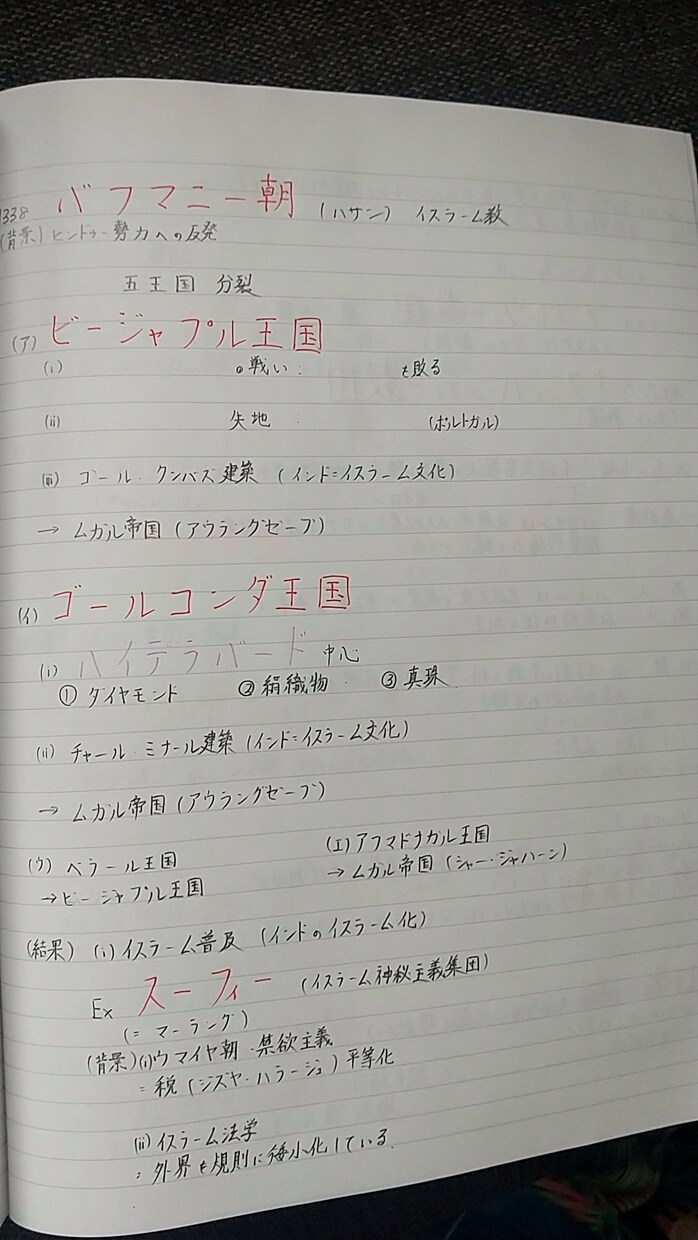 1338 バフマニー朝 (ハサン) イスラーム教
(背景) ヒンドゥー勢力への反発
五王国 分裂
(ア) ビージャプル王国
(i) の戦い: を敗る
(ii) 失地 : (ポルトガル)
(iii) ゴール・クンバズ建築 (インド=イスラーム文化)
→ ムガル帝国 (アウラングゼーブ)
(イ) ゴールコンダ王国
(i) ハイデラバード 中心
① ダイヤモンド ② 絹織物 ③ 真珠
(ii) チャール・ミナール建築 (インド=イスラーム文化)
→ ムガル帝国 (アウラングゼーブ)
(ウ) ベラール王国 (エ) アフマドナガル王国
→ ビージャプル王国 → ムガル帝国 (シャー・ジャハーン)
(結果) (i) イスラーム普及 (インドのイスラーム化)
Ex スーフィー (イスラーム神秘主義集団)
(= マーラング)
(背景) (i) ウマイヤ朝・禁欲主義
= 税 (ジズヤ・ハラージュ) 平等化
(ii) イスラーム法学
: 外界を規則に矮小化している.